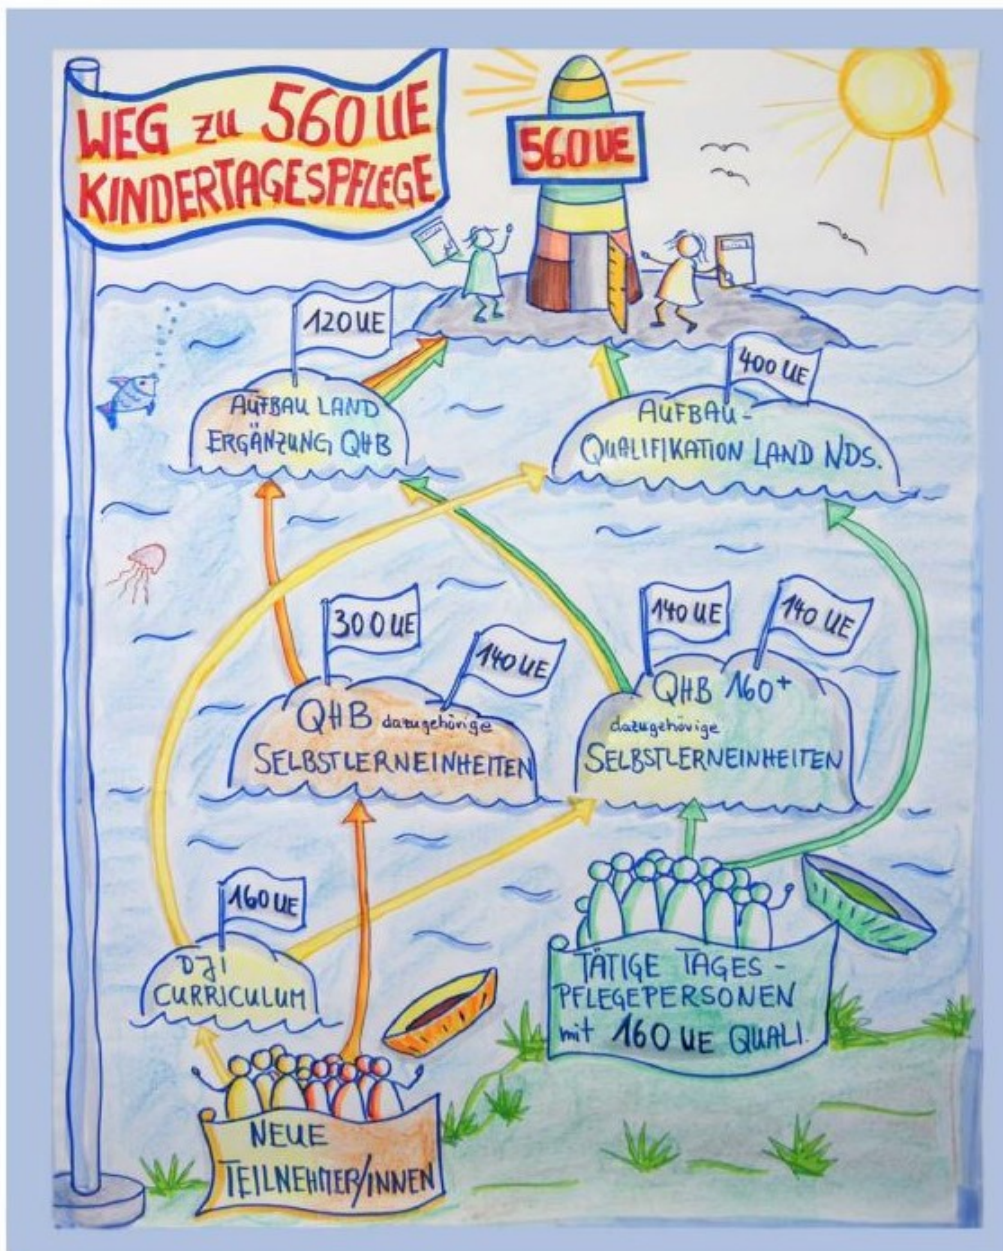 WEG zu 560 UE
KINDERTAGESPFLEGE
560 UE
120 UE
AUFBAU LAND
ERGÄNZUNG QHB
400 UE
AUFBAU-
QUALIFIKATION LAND NDS.
300 UE
140 UE
QHB dazugehörige
SELBSTLERNEINHEITEN
140 UE
140 UE
QHB 160+
dazugehörige
SELBSTLERNEINHEITEN
160 UE
DJI
CURRICULUM
TÄTIGE TAGES-
PFLEGEPERSONEN
mit 160 UE QUALI.
NEUE
TEILNEHMER/INNEN